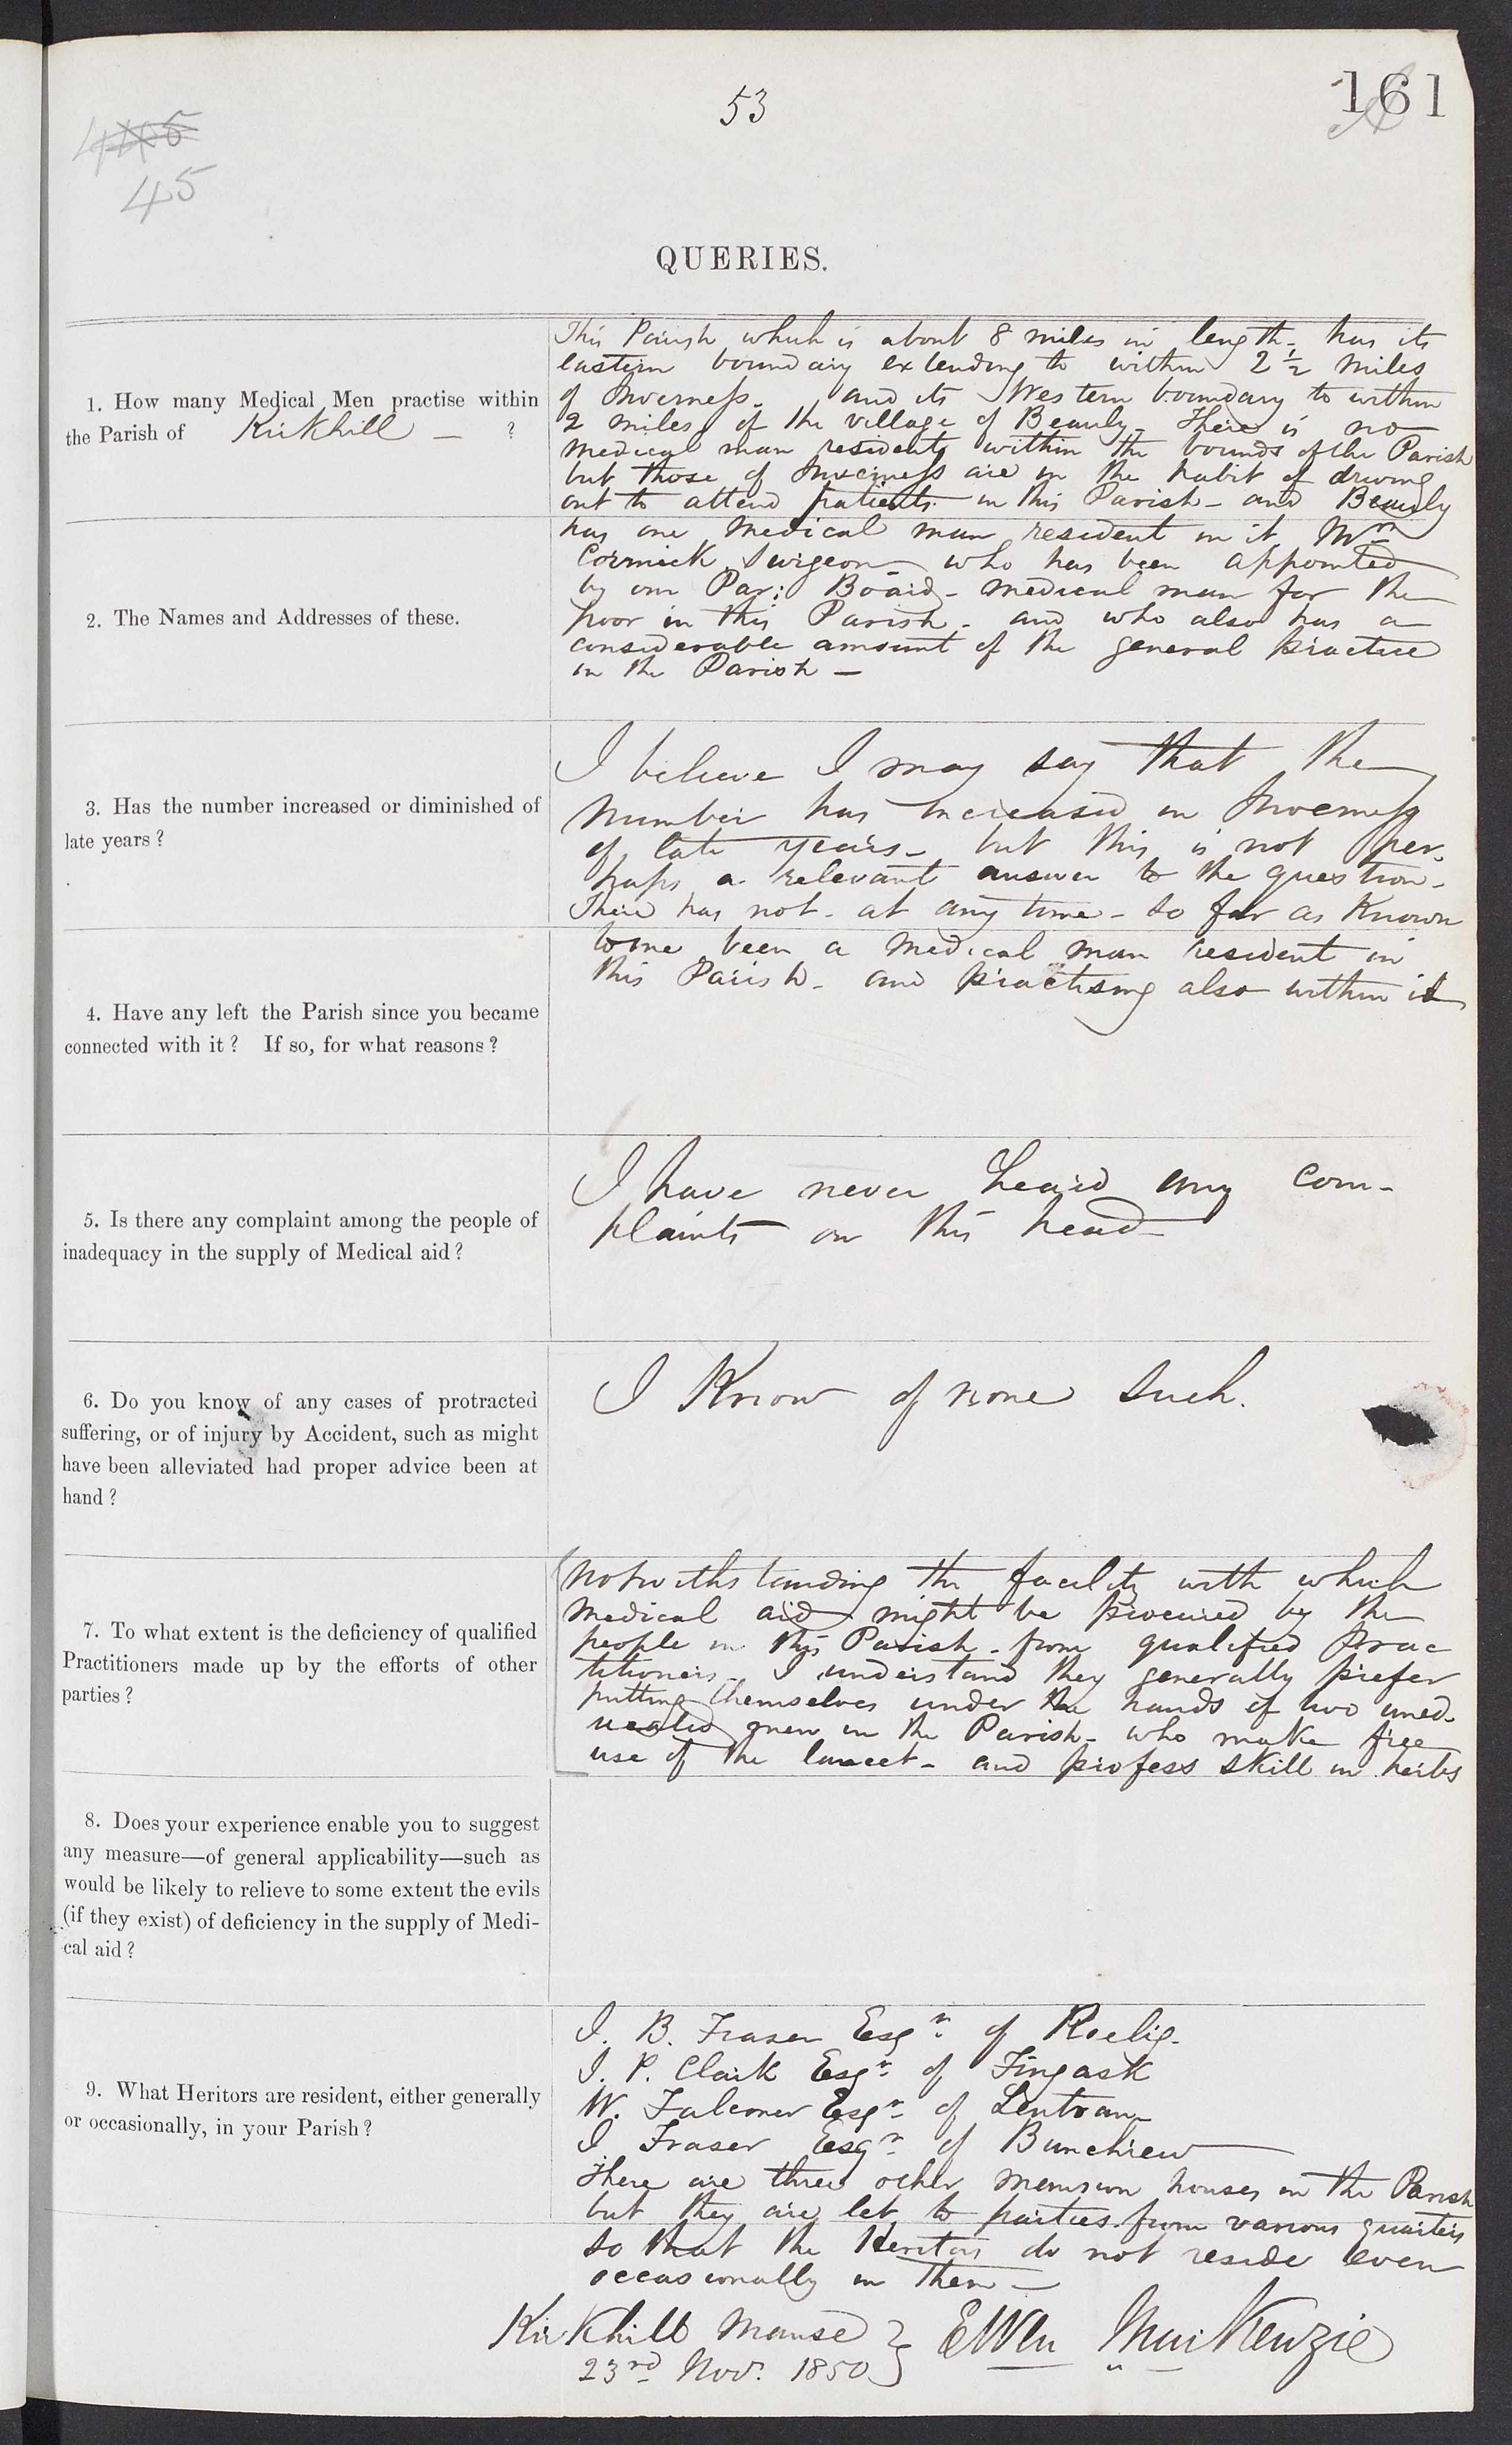 53
161
445
45
QUERIES.
1. How many Medical Men practise within
the Parish of Kirkhill — ?
This Parish which is about 8 miles in length - has its
eastern boundary extending to within 2 1/2 miles
of Inverness - and its Western boundary to within
2 miles of the village of Beauly - There is no
medical man resident within the bounds of the Parish
but those of Inverness are in the habit of driving
out to attend patients in this Parish - and Beauly
has one medical man resident in it Wm
Cormick Surgeon - who has been appointed
by our Par: Board - medical man for the
poor in this Parish - and who also has a
considerable amount of the general practice
in the Parish —
2. The Names and Addresses of these.
3. Has the number increased or diminished of
late years ?
I believe I may say that the
number has increased in Inverness
of late years - but this is not per-
haps a relevant answer to the question -
There has not - at any time - so far as Known
to me been a medical man resident in
this Parish - and practising also within it
4. Have any left the Parish since you became
connected with it ? If so, for what reasons ?
5. Is there any complaint among the people of
inadequacy in the supply of Medical aid ?
I have never heard any com-
plaints on this head -
6. Do you know of any cases of protracted
suffering, or of injury by Accident, such as might
have been alleviated had proper advice been at
hand ?
I Know of none such.
7. To what extent is the deficiency of qualified
Practitioners made up by the efforts of other
parties ?
Notwithstanding the facility with which
medical aid might be procured by the
people in this Parish - from qualified prac
titioners - I understand they generally prefer
putting themselves under the hands of two uned-
ucated men in the Parish - who make free
use of the lancet - and profess skill in herbs
8. Does your experience enable you to suggest
any measure—of general applicability—such as
would be likely to relieve to some extent the evils
(if they exist) of deficiency in the supply of Medi-
cal aid ?
9. What Heritors are resident, either generally
or occasionally, in your Parish ?
J. B. Fraser Esqr. of Reelig -
J. P. Clark Esqr. of Fingask
W. Falconer Esqr. of Lentran -
J. Fraser Esqr. of Bunchrew —
There are three other mansion houses in the Parish
but they are let to parties from various quarters
so that the Heritors do not reside even
occasionally in them —
Kirkhill Manse } Ewen MacKenzie
23rd Nov. 1850 }